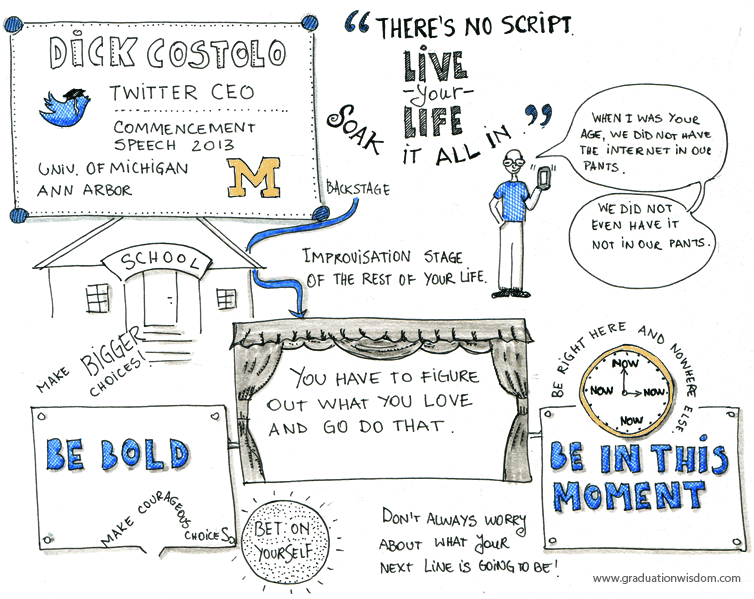 DICK COSTOLO
TWITTER CEO
COMMENCEMENT
SPEECH 2013
UNIV. OF MICHIGAN
ANN ARBOR
M
"THERE'S NO SCRIPT.
LIVE
-YOUR-
LIFE
SOAK IT ALL IN."
WHEN I WAS YOUR
AGE, WE DID NOT HAVE
THE INTERNET IN OUR
PANTS.
WE DID NOT
EVEN HAVE IT
NOT IN OUR PANTS.
BACKSTAGE
SCHOOL
IMPROVISATION STAGE
OF THE REST OF YOUR LIFE.
MAKE BIGGER
CHOICES!
YOU HAVE TO FIGURE
OUT WHAT YOU LOVE
AND GO DO THAT.
BE RIGHT HERE AND NOWHERE ELSE.
NOW
NOW
NOW
NOW
BE BOLD
MAKE COURAGEOUS
CHOICES
BE IN THIS
MOMENT
BET ON
YOURSELF
DON'T ALWAYS WORRY
ABOUT WHAT YOUR
NEXT LINE IS GOING TO BE!
www.graduationwisdom.com